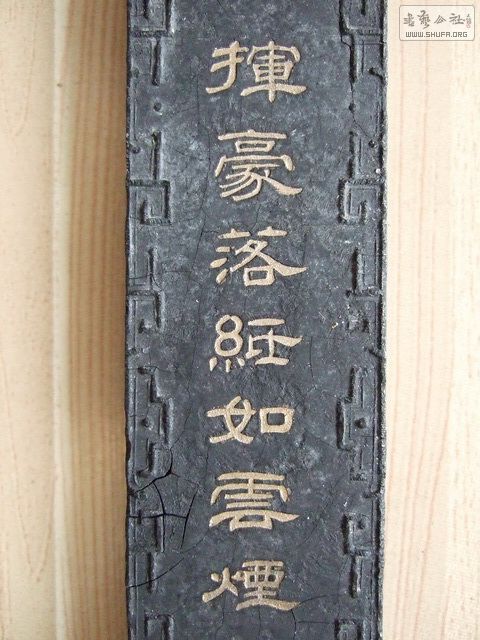 揮豪落紙如雲煙
書藝公社
WWW.SHUFA.ORG